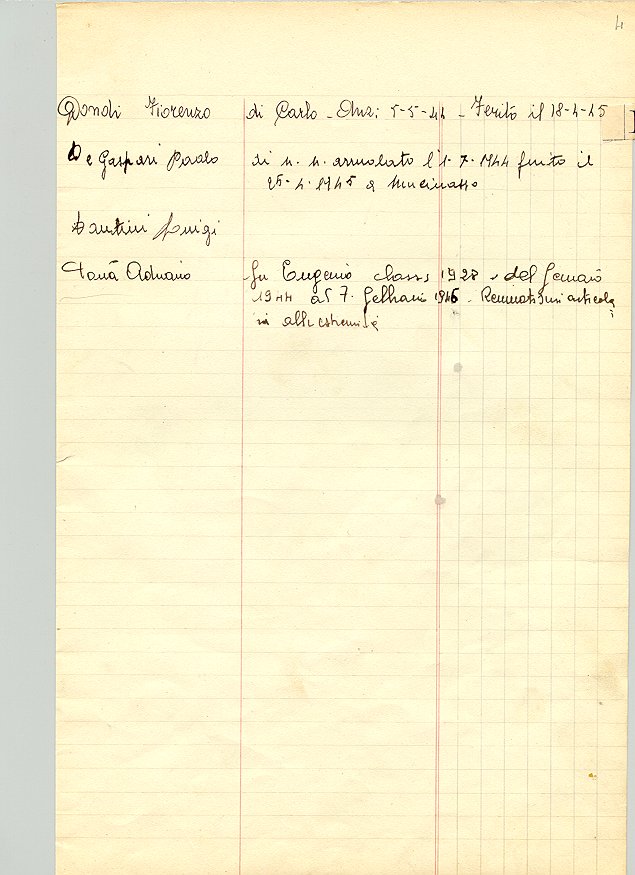 4
Dondi Fiorenzo di Carlo - Anz: 5-5-44 - Ferito il 18-4-45
De Gaspari Paolo di n. n. arruolato l'1-7-1944 ferito il
25-4-1945 a Mucinasso
Santini Luigi
Tanã Adriano fu Eugenio classe 1928 - del Gennaio
1944 al 7. Febbraio 1946 - Reumatismi articola
ri alle estremità